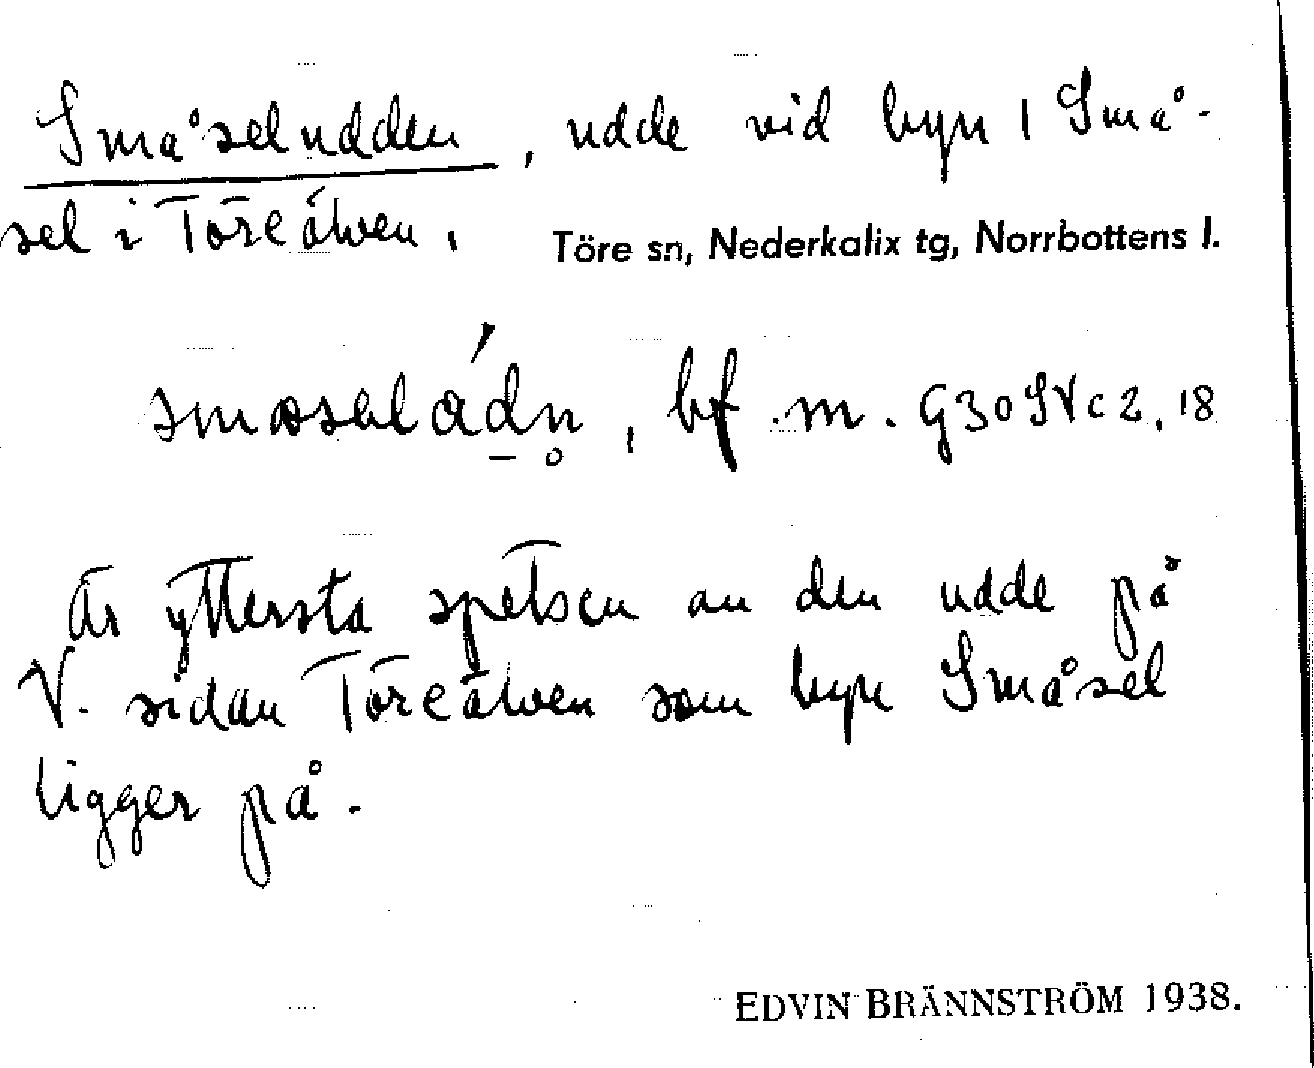 Småseludden, udde vid byn 1 Små-
sel i Töreälven.
Töre sn, Nederkalix tg, Norrbottens l.
bf. m. G30SVc2,18
Är yttersta spetsen av den udde på
V. sidan Töreälven som byn Småsel
ligger på.
EDVIN BRÄNNSTRÖM 1938.